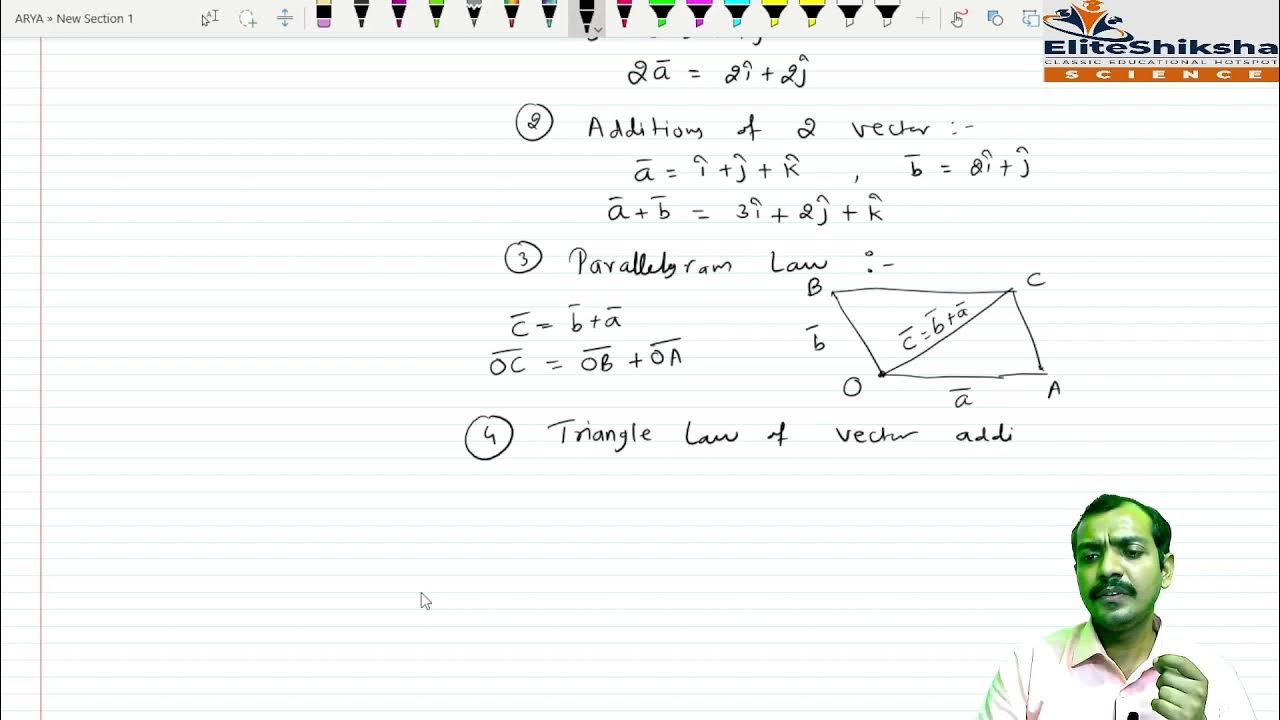 ARYA » New Section 1
EliteShiksha
CLASSIC EDUCATIONAL HOTSPOT
SCIENCE
2a̅ = 2î + 2ĵ
② Additions of 2 vector :-
a̅ = î + ĵ + k̂ , b̅ = 2î + ĵ
a̅ + b̅ = 3î + 2ĵ + k̂
③ Parallelgram Law :-
B C
c̅ = b̅ + a̅
b̅ c̅ = b̅ + a̅
O̅C̅ = O̅B̅ + O̅A̅
O a̅ A
④ Triangle Law of vector addi